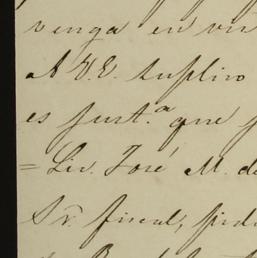 venga en vir
A V.E. suplico
es just.ª que
= Liv. José M. de
Sr. fiscal, pide